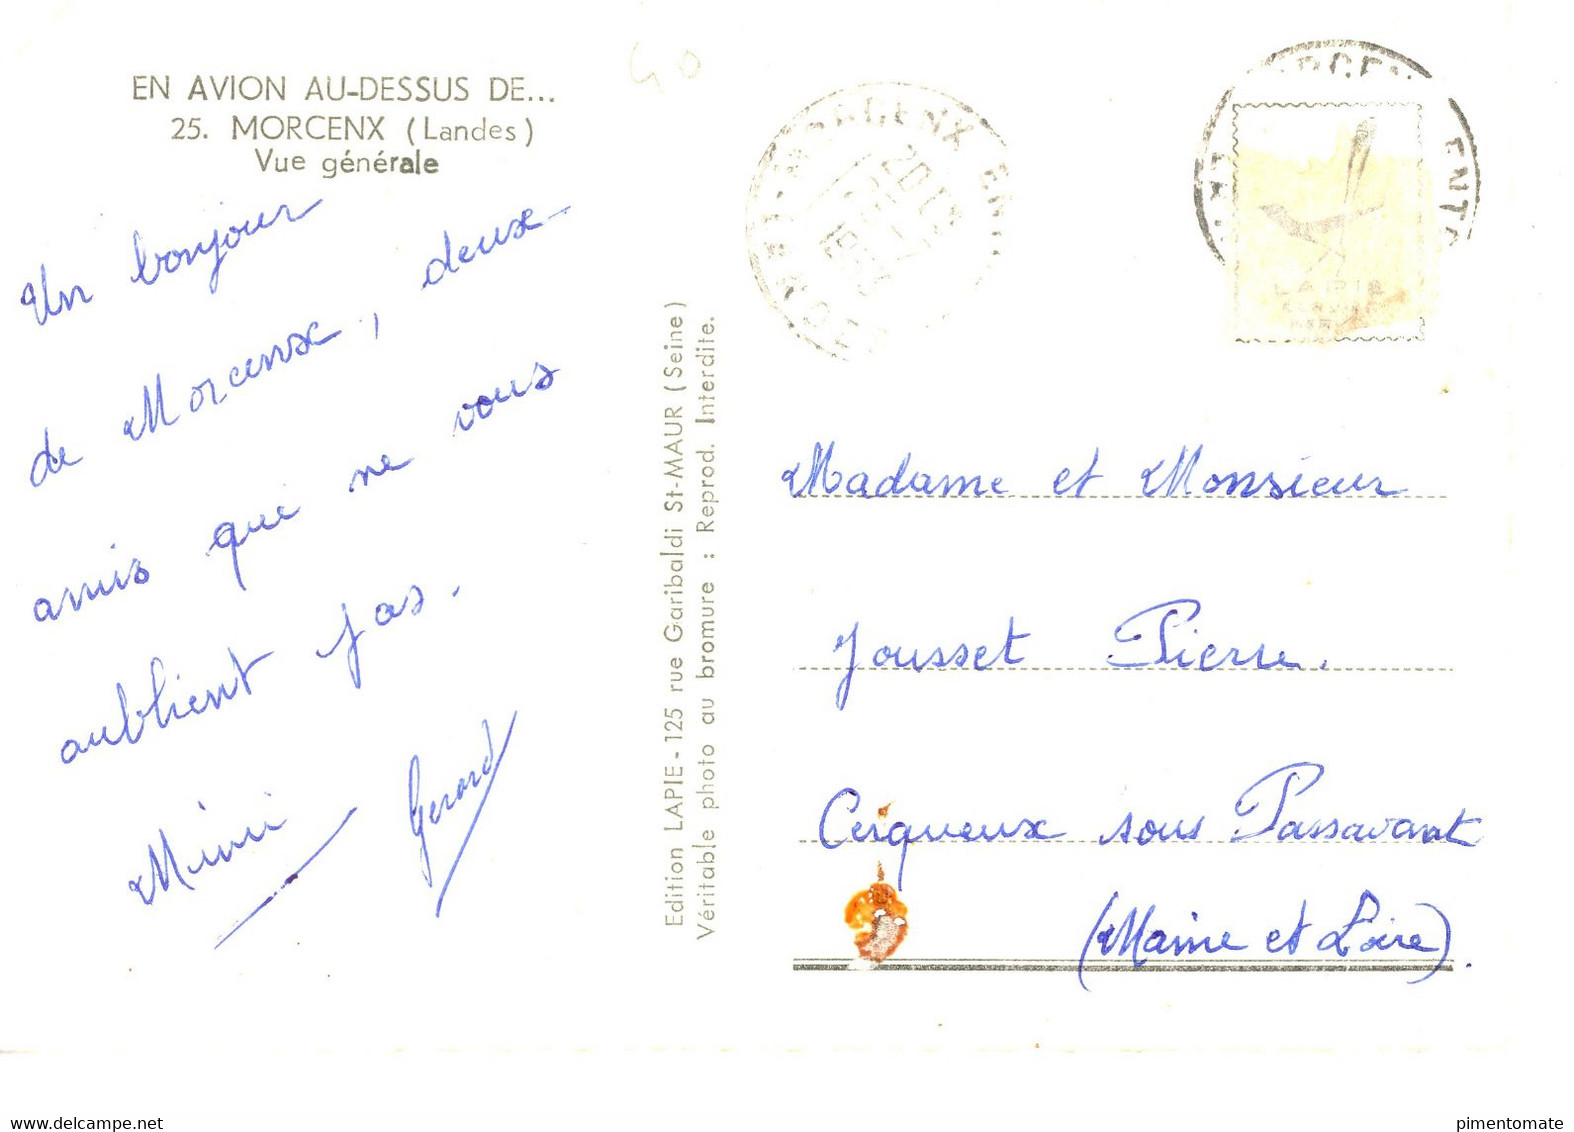 EN AVION AU-DESSUS DE...
25. MORCENX (Landes)
Vue générale
Un bonjour
de Morcenx, deux
amis que ne vous
oublient pas.
Mimi Gerard
40
Edition LAPIE - 125 rue Garibaldi St-MAUR (Seine)
Véritable photo au bromure : Reprod. Interdite.
MORCENX
LAPIE
Madame et Monsieur
Jousset Pierre.
Cerqueux sous Passavant
(Maine et Loire).
www.delcampe.net
pimentomate